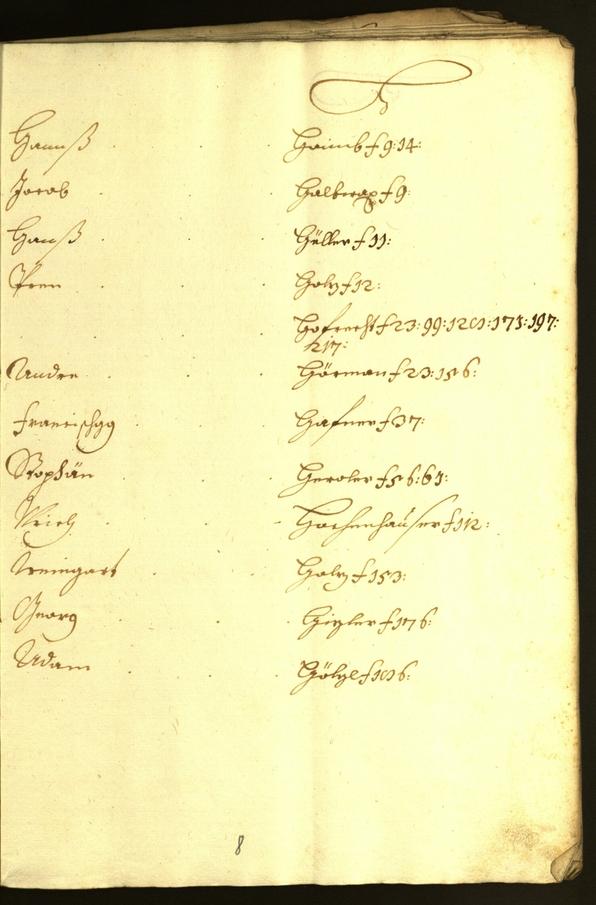 H
Hannß Haimb f 9: 14:
Jacob Haltmayr f 9:
Hanß Hüller f 11:
Holz f 12:
Hofrecht f 23: 99: 1201: 173: 197:
217:
Andre Hörman f 23: 156:
Francischgg Hafner f 37:
Stephän Heroler f 56: 61:
Vlrich Hochenhäuser f 112:
Weingart Holz f 153:
Georg Hizler f 176:
Adam Hölzl f 186:
8